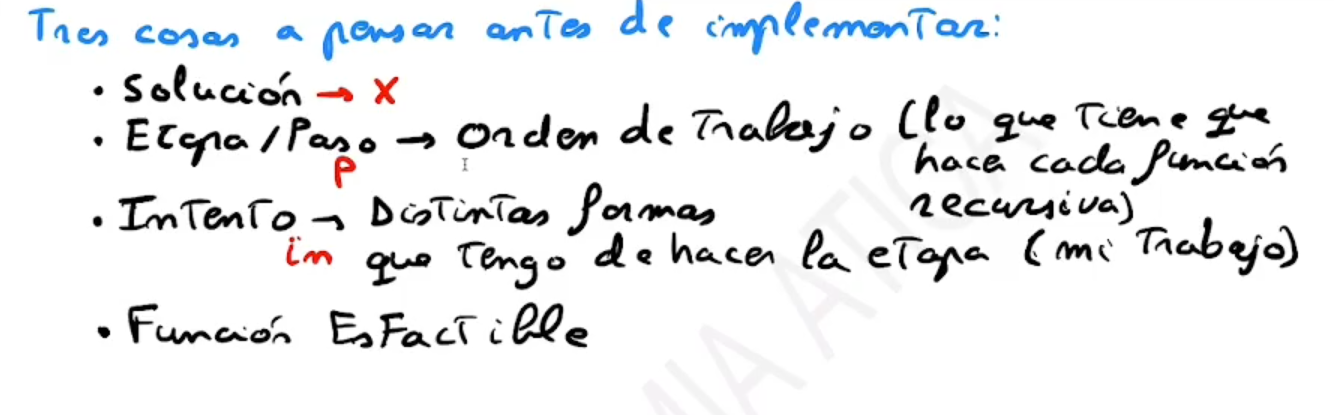 Tres cosas a pensar antes de implementar:
• Solución → X
• Etapa/Paso → Orden de Trabajo (lo que tiene que
P
hacer cada función
recursiva)
• Intento → Distintas formas
in que tengo de hacer la etapa (mi trabajo)
• Función EsFactible
MIA ATICA